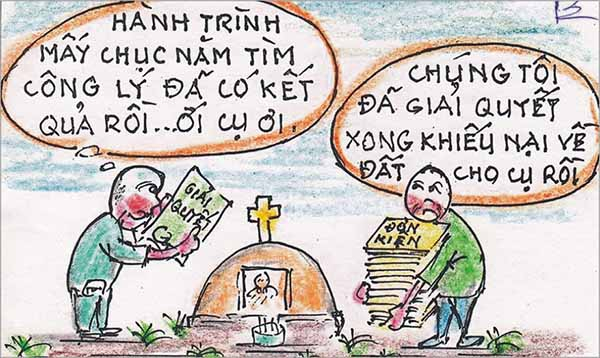 HÀNH TRÌNH
MẤY CHỤC NĂM TÌM
CÔNG LÝ ĐÃ CÓ KẾT
QUẢ RỒI...ỐI CỤ ƠI.
CHÚNG TÔI
ĐÃ GIẢI QUYẾT
XONG KHIẾU NẠI VỀ
ĐẤT CHO CỤ RỒI
GIẢI
QUYẾT
ĐƠN
KIỆN